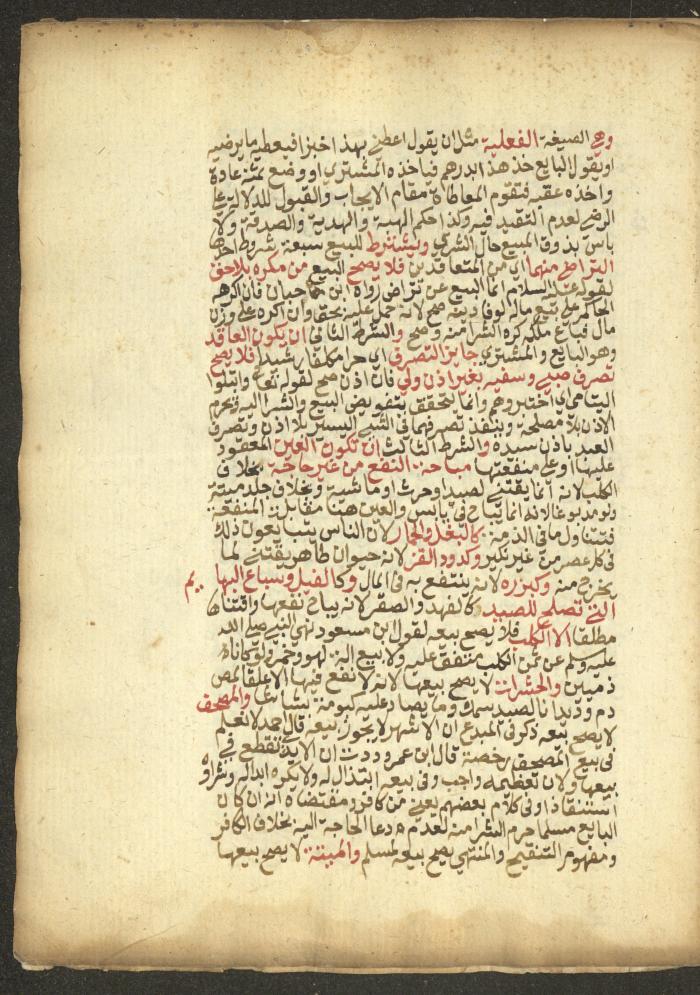 وهي الصيغة الفعلية مثل ان يقول اعطني بهذا خبزا فيعطيه ما يرضيه
او يقول البايع خذ هذا بدرهم فياخذه المشتري او وضع ثمنه عادة
واخذه عقبه فتقوم المعاطاة مقام الايجاب والقبول للدلالة على
الرضى لعدم التقيد فيه وكذا حكم الهبة والهدية والصدقة ولا
باس بذوق المبيع حال الشرى ويشترط للبيع سبعة شروط احدها
التراضي منهما اي من المتعاقدين فلا يصح البيع من مكره بلا حق
لقوله عليه السلام انما البيع عن تراض رواه ابن حبان فان اكرهه
الحاكم على بيع ماله لوفا دينه صح لانه حمل عليه بحق وان اكره على وزن
مال فباع ملكه كره الشرا منه وصح والشرط الثاني ان يكون العاقد
وهو البايع والمشتري جايز التصرف اي حرا مكلفا رشيدا فلا يصح
تصرف صبي وسفيه بغير اذن ولي فان اذن صح لقوله تعالى وابتلوا
اليتامى اي اختبروهم وانما يتحقق بتفويض البيع والشرا اليه ويحرم
الاذن بلا مصلحة وينفذ تصرفهما في الشيء اليسير بلا اذن وتصرف
العبد باذن سيده والشرط الثالث ان تكون العين المعقود
عليها او على منفعتها مباحة النفع من غير حاجة بخلاف
الكلب لانه انما يقتنى لصيد او حرث او ماشية وبخلاف جلد ميتة
ولو مدبوغا لانه انما يباح في يابس والعين هنا مقابل المنفعة
فتتناول ما في الذمة كالبغل والحمار لان الناس يتبايعون ذلك
في كل عصر من غير نكير وكدود القز لانه حيوان طاهر يقتنى لما
يخرج منه وكبزره لانه ينتفع به في المال وكالفيل وسباع البهايم
التي تصلح للصيد كالفهد والصقر لانه يباح نفعها واقتناها
مطلقا الا الكلب فلا يصح بيعه لقول ابن مسعود نهى النبي صلى الله
عليه وسلم عن ثمن الكلب متفق عليه ولا بيع الة لهو وخمر ولو كانا
ذميين والحشرات لا يصح بيعها لانه لا نفع فيها الا علقا لمص
دم وديدانا لصيد سمك وما يصاد عليه كبومة شباشا والمصحف
لا يصح بيعه ذكر في المبدع ان الاشهر لا يجوز بيعه قال احمد لا نعلم
في بيع المصحف رخصة قال ابن عمر وددت ان الايدي تقطع في
بيعها ولان تعظيمه واجب وفي بيعه ابتذال له ولا يكره ابداله وشراوه
استنقاذا وفي كلام بعضهم يعني من كافر ومقتضاه انه ان كان
البايع مسلما حرم الشرا منه لعدم دعا الحاجة اليه بخلاف الكافر
ومفهوم التنقيح والمنتهى يصح بيعه لمسلم والميتة لا يصح بيعها